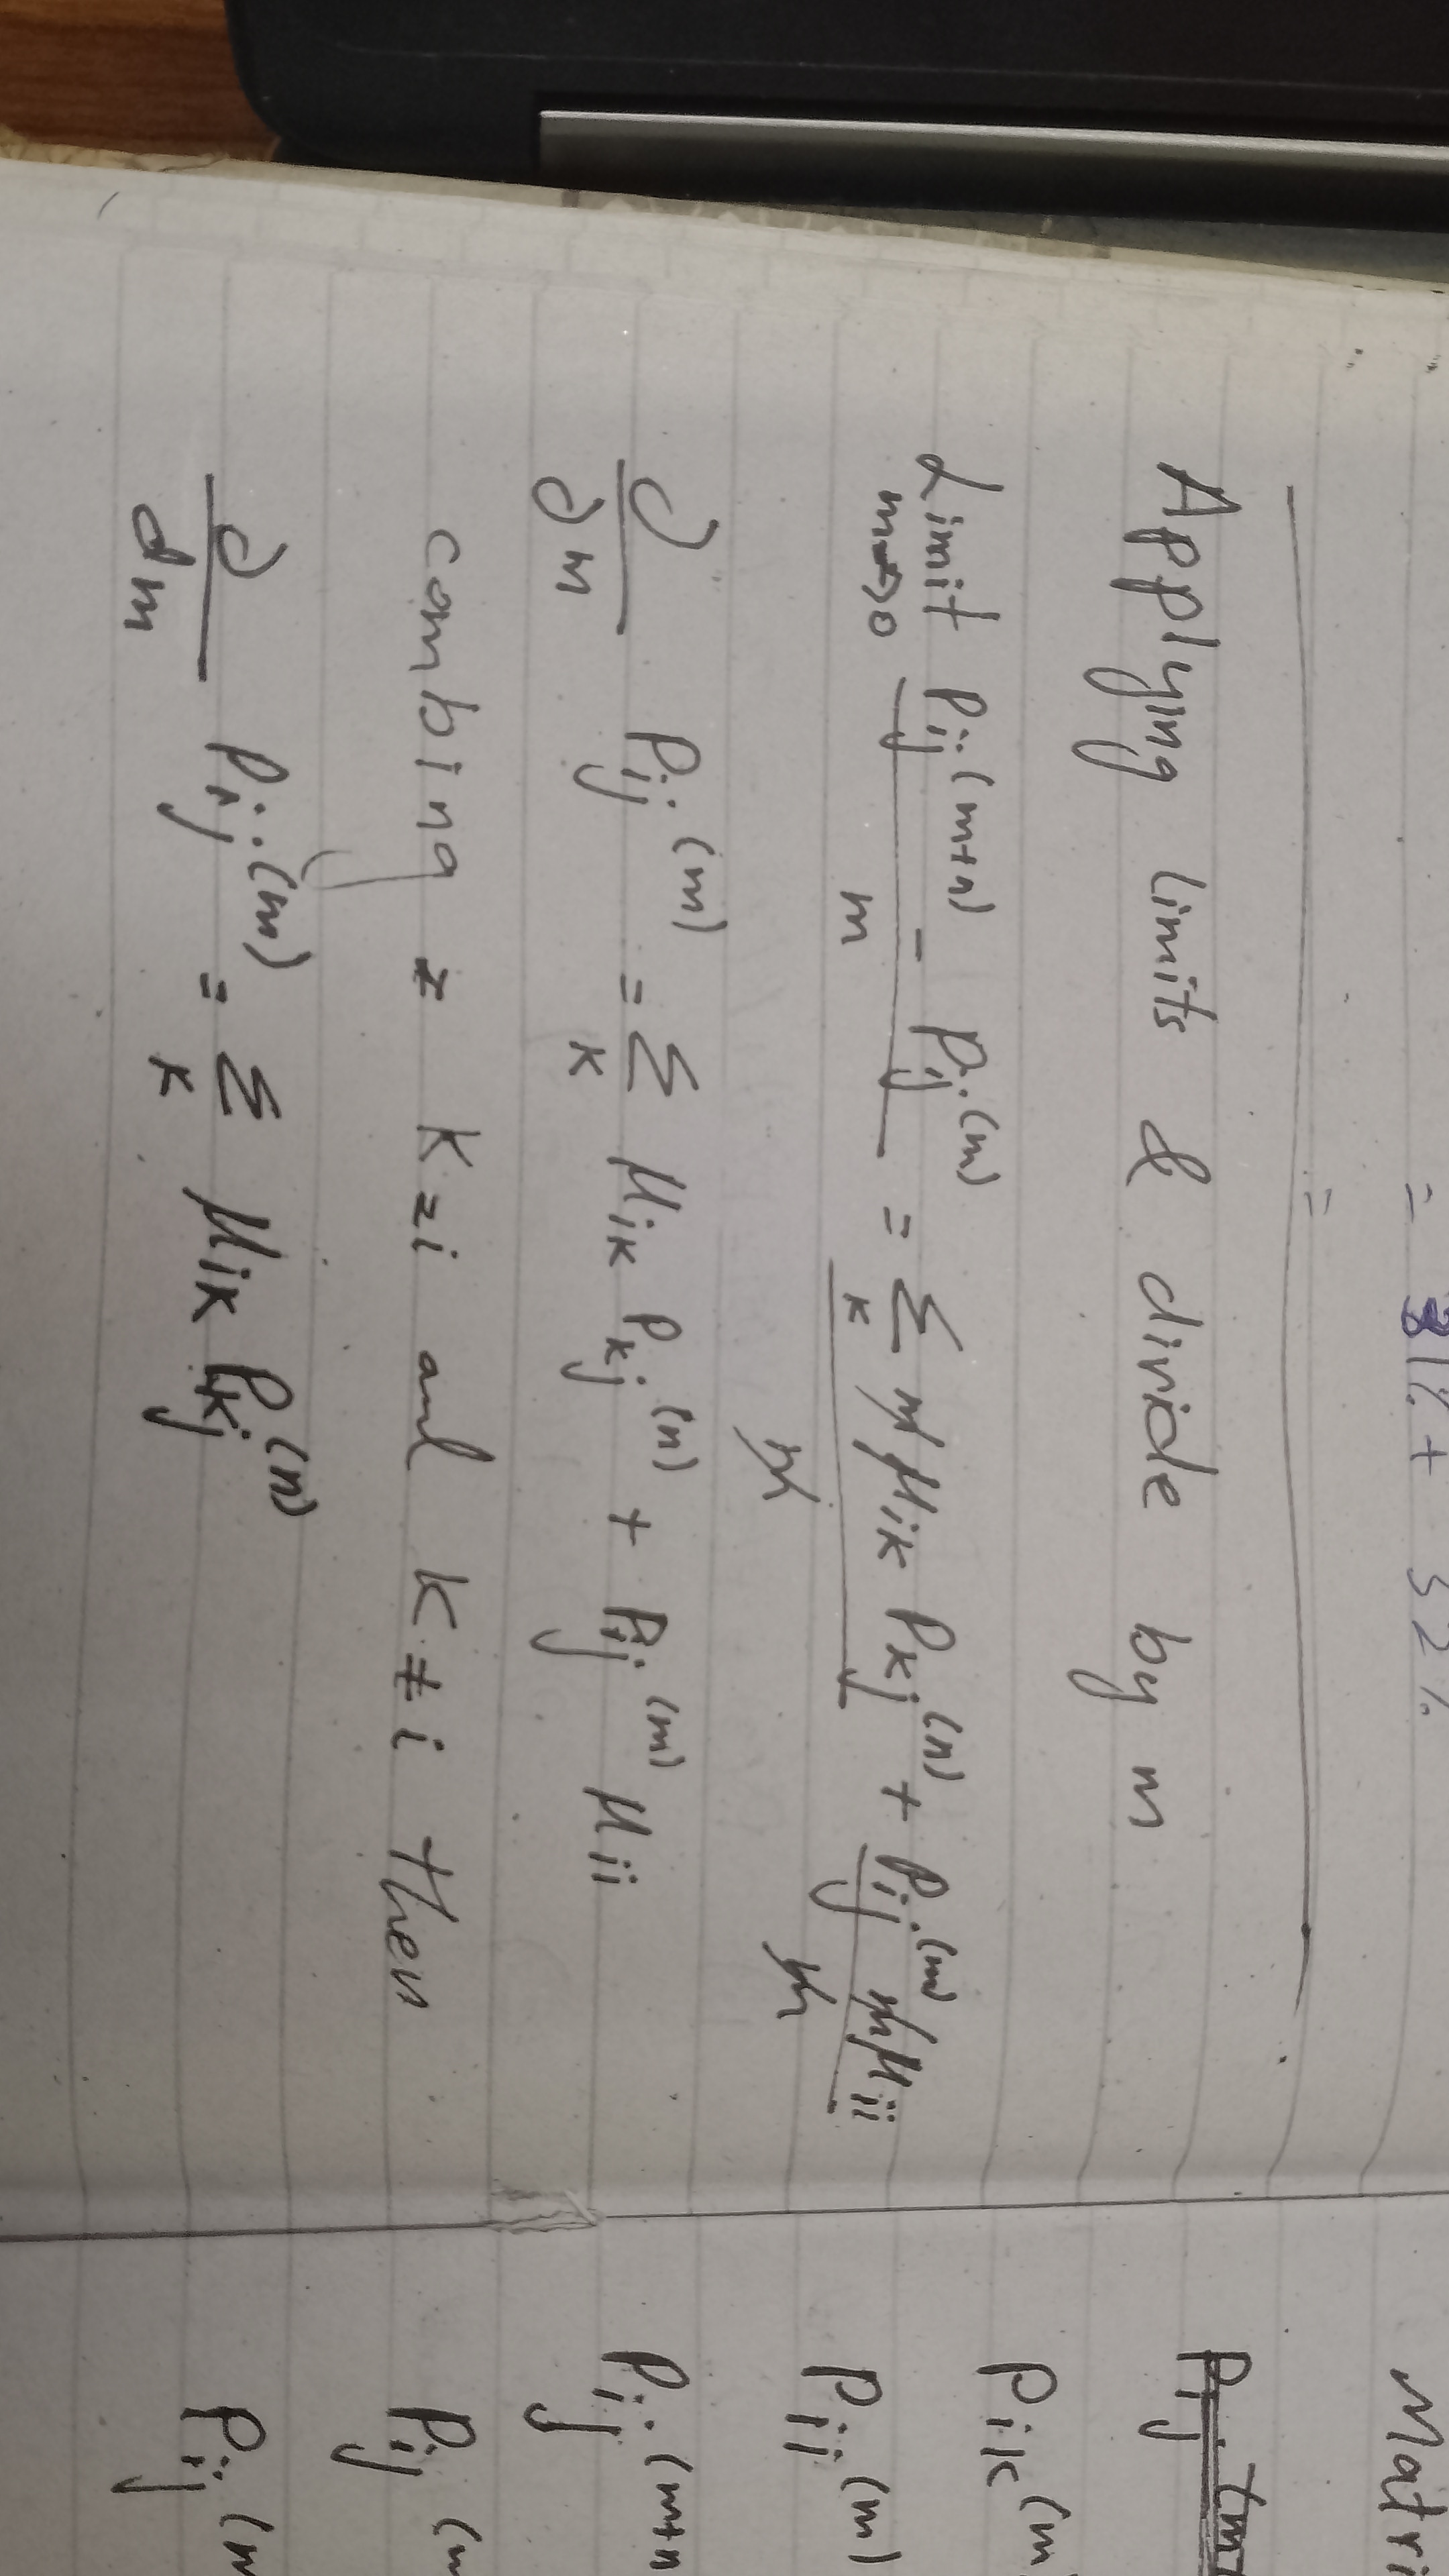 = 31% + 32%
=
Applying limits & divide by m
Limit m→0 (Pij(m+n) - Pij(m)) / m = Σk m μik Pkj(n) / m + Pij(m) m μii / m
∂/∂m Pij(m) = Σk μik Pkj(n) + Pij(m) μii
combing k=i and k≠i then
∂/∂m Pij(m) = Σk μik Pkj(n)
Matri
Pik(m
Pii(m)
Pij(m+n
Pij(m
Pij(m